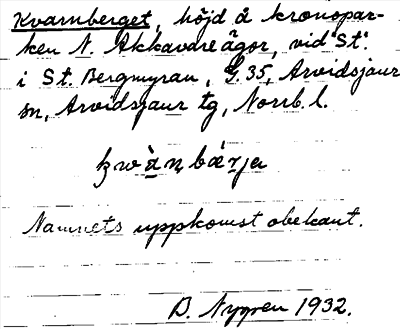 Kvarnberget, höjd å kronopar-
ken N. Akkavare ägor, vid "St."
i St. Bergmyran, G. 35, Arvidsjaur
sn, Arvidsjaur tg, Norrb. l.
Namnets uppkomst obekant.
B. Nygren 1932.